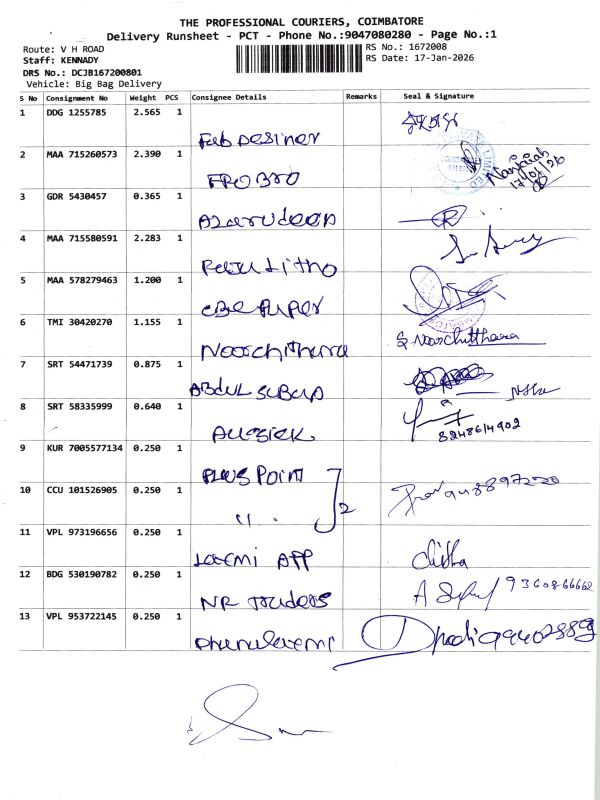 THE PROFESSIONAL COURIERS, COIMBATORE
Delivery Runsheet - PCT - Phone No.:9047080280 - Page No.:1
Route: V H ROAD
RS No.: 1672008
Staff: KENNADY
RS Date: 17-Jan-2026
DRS No.: DCJB167200801
Vehicle: Big Bag Delivery
S No Consignment No Weight PCS Consignee Details Remarks Seal & Signature
1 DDG 1255785 2.565 1
Fab Desiner
2 MAA 715260573 2.390 1 Nanjaiah
17/01/26
3 GDR 5430457 0.365 1
Azarudeen
4 MAA 715580591 2.283 1
Litho
5 MAA 578279463 1.200 1
CBE Paper
6 TMI 30420270 1.155 1
Noorchithara S Noorchitthara
7 SRT 54471739 0.875 1
Abdul
8 SRT 58335999 0.640 1
9 KUR 7005577134 0.250 1
Plus Point
10 CCU 101526905 0.250 1
" 2
11 VPL 973196656 0.250 1
Laxmi App
12 BDG 530190782 0.250 1 9360866662
NR Traders
13 VPL 953722145 0.250 1
Dhanalaxmi